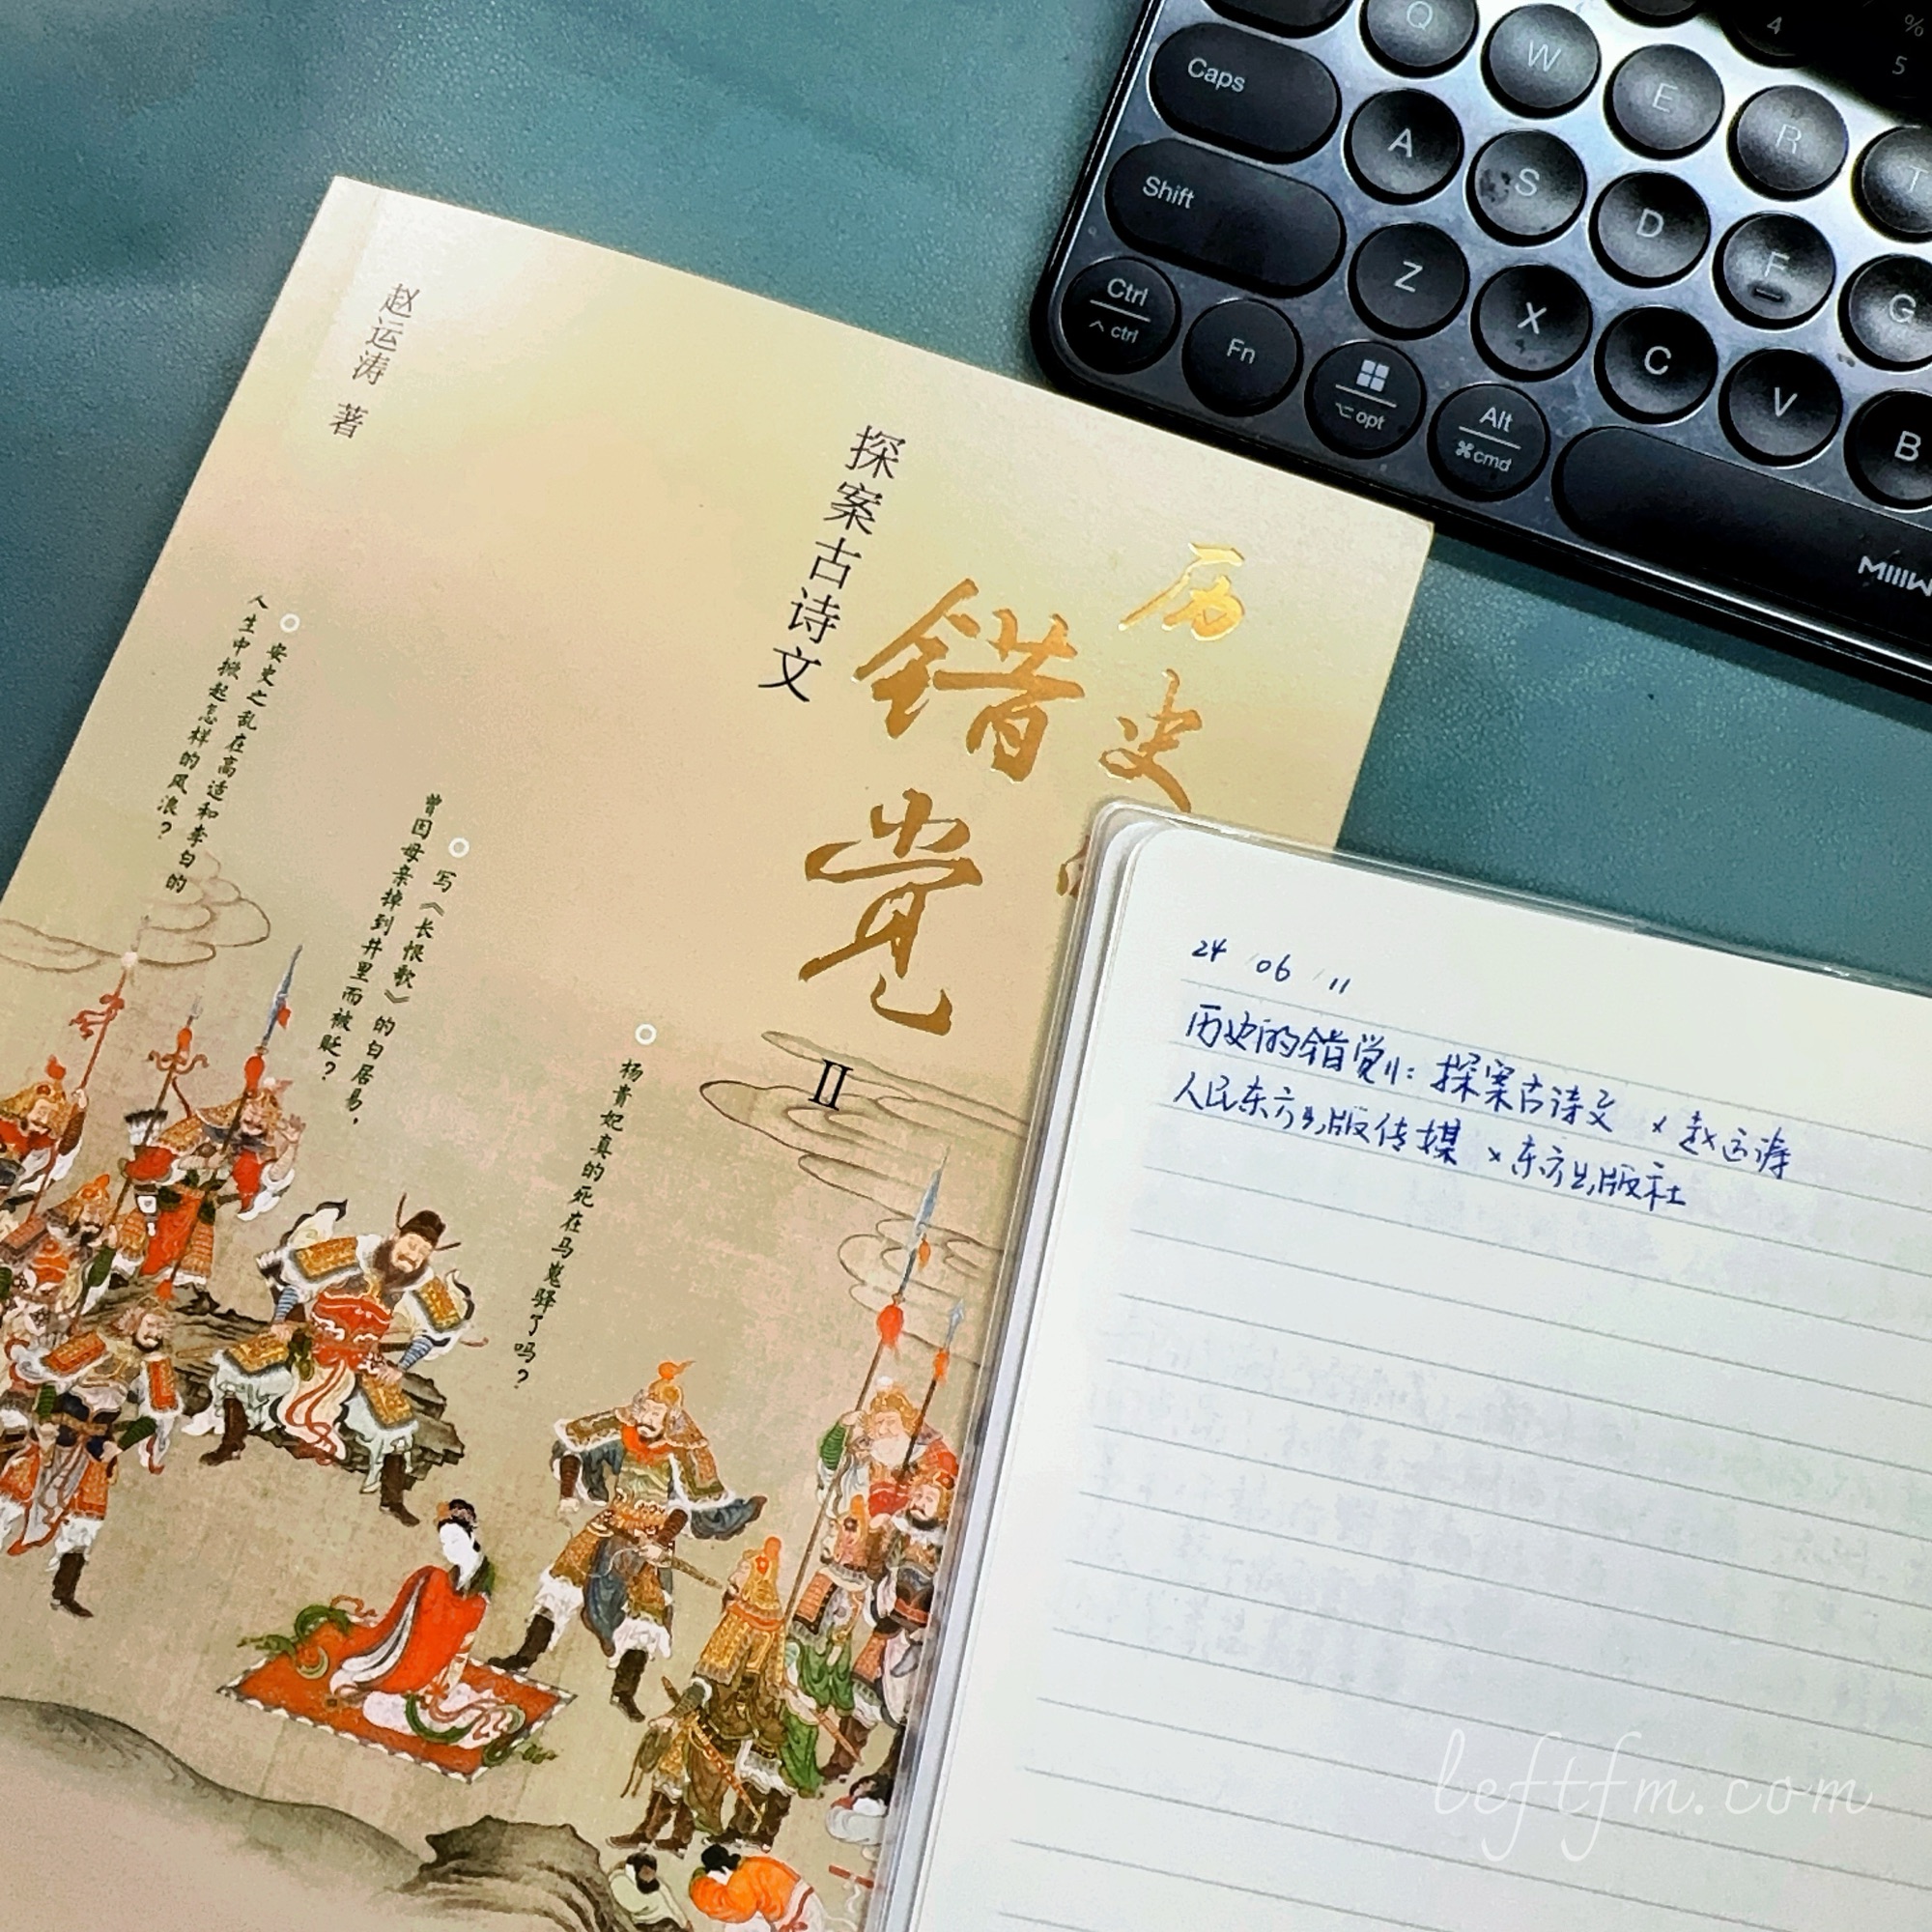 历史
错觉
II
探案古诗文
赵运涛 著
安史之乱在高适和李白的
人生中掀起怎样的风浪？
写《长恨歌》的白居易，
曾因母亲掉到井里而被贬？
杨贵妃真的死在马嵬驿了吗？
24/06/11
历史的错觉II：探案古诗文 × 赵运涛
人民东方出版传媒 × 东方出版社
Q W E R T
4
%
5
Caps A S D F G
Shift Z X C V B
Ctrl
^ ctrl
Fn
⌥ opt
Alt
⌘ cmd
MIIIW
leftfm.com